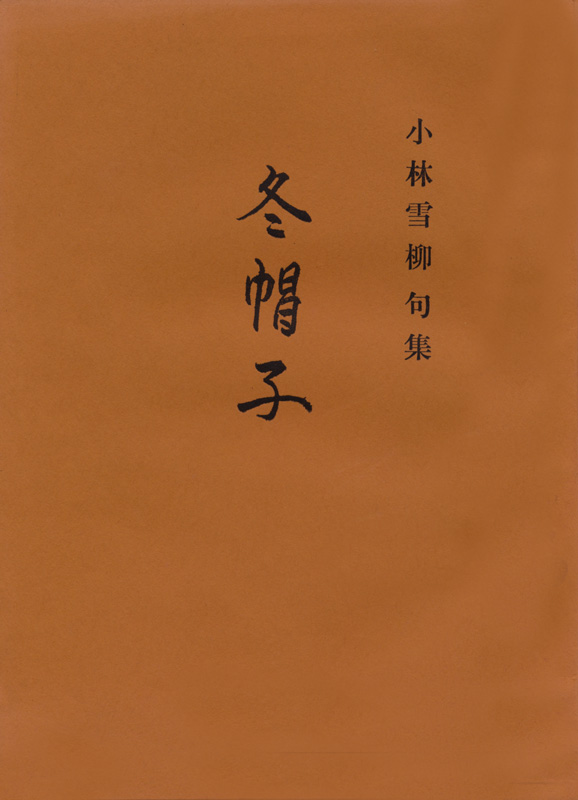 小林雪柳句集
冬帽子